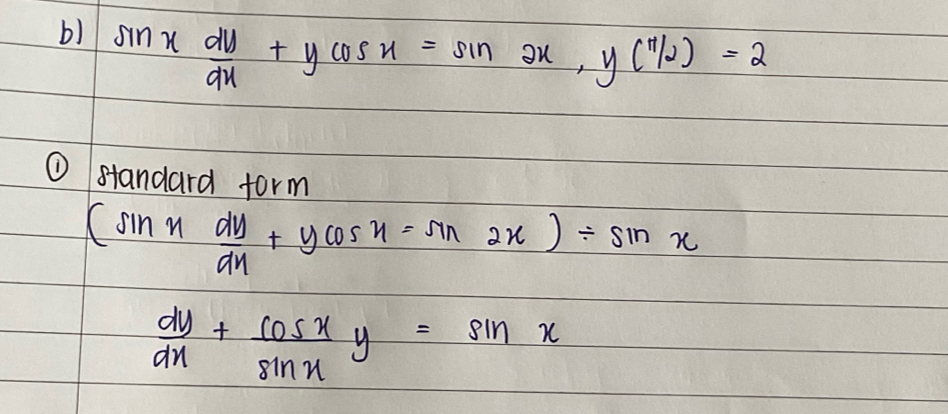 b) sin x dy/dx + y cos x = sin 2x, y(π/2) = 2
① standard form
(sin x dy/dx + y cos x = sin 2x) ÷ sin x
dy/dx + cos x/sin x y = sin x